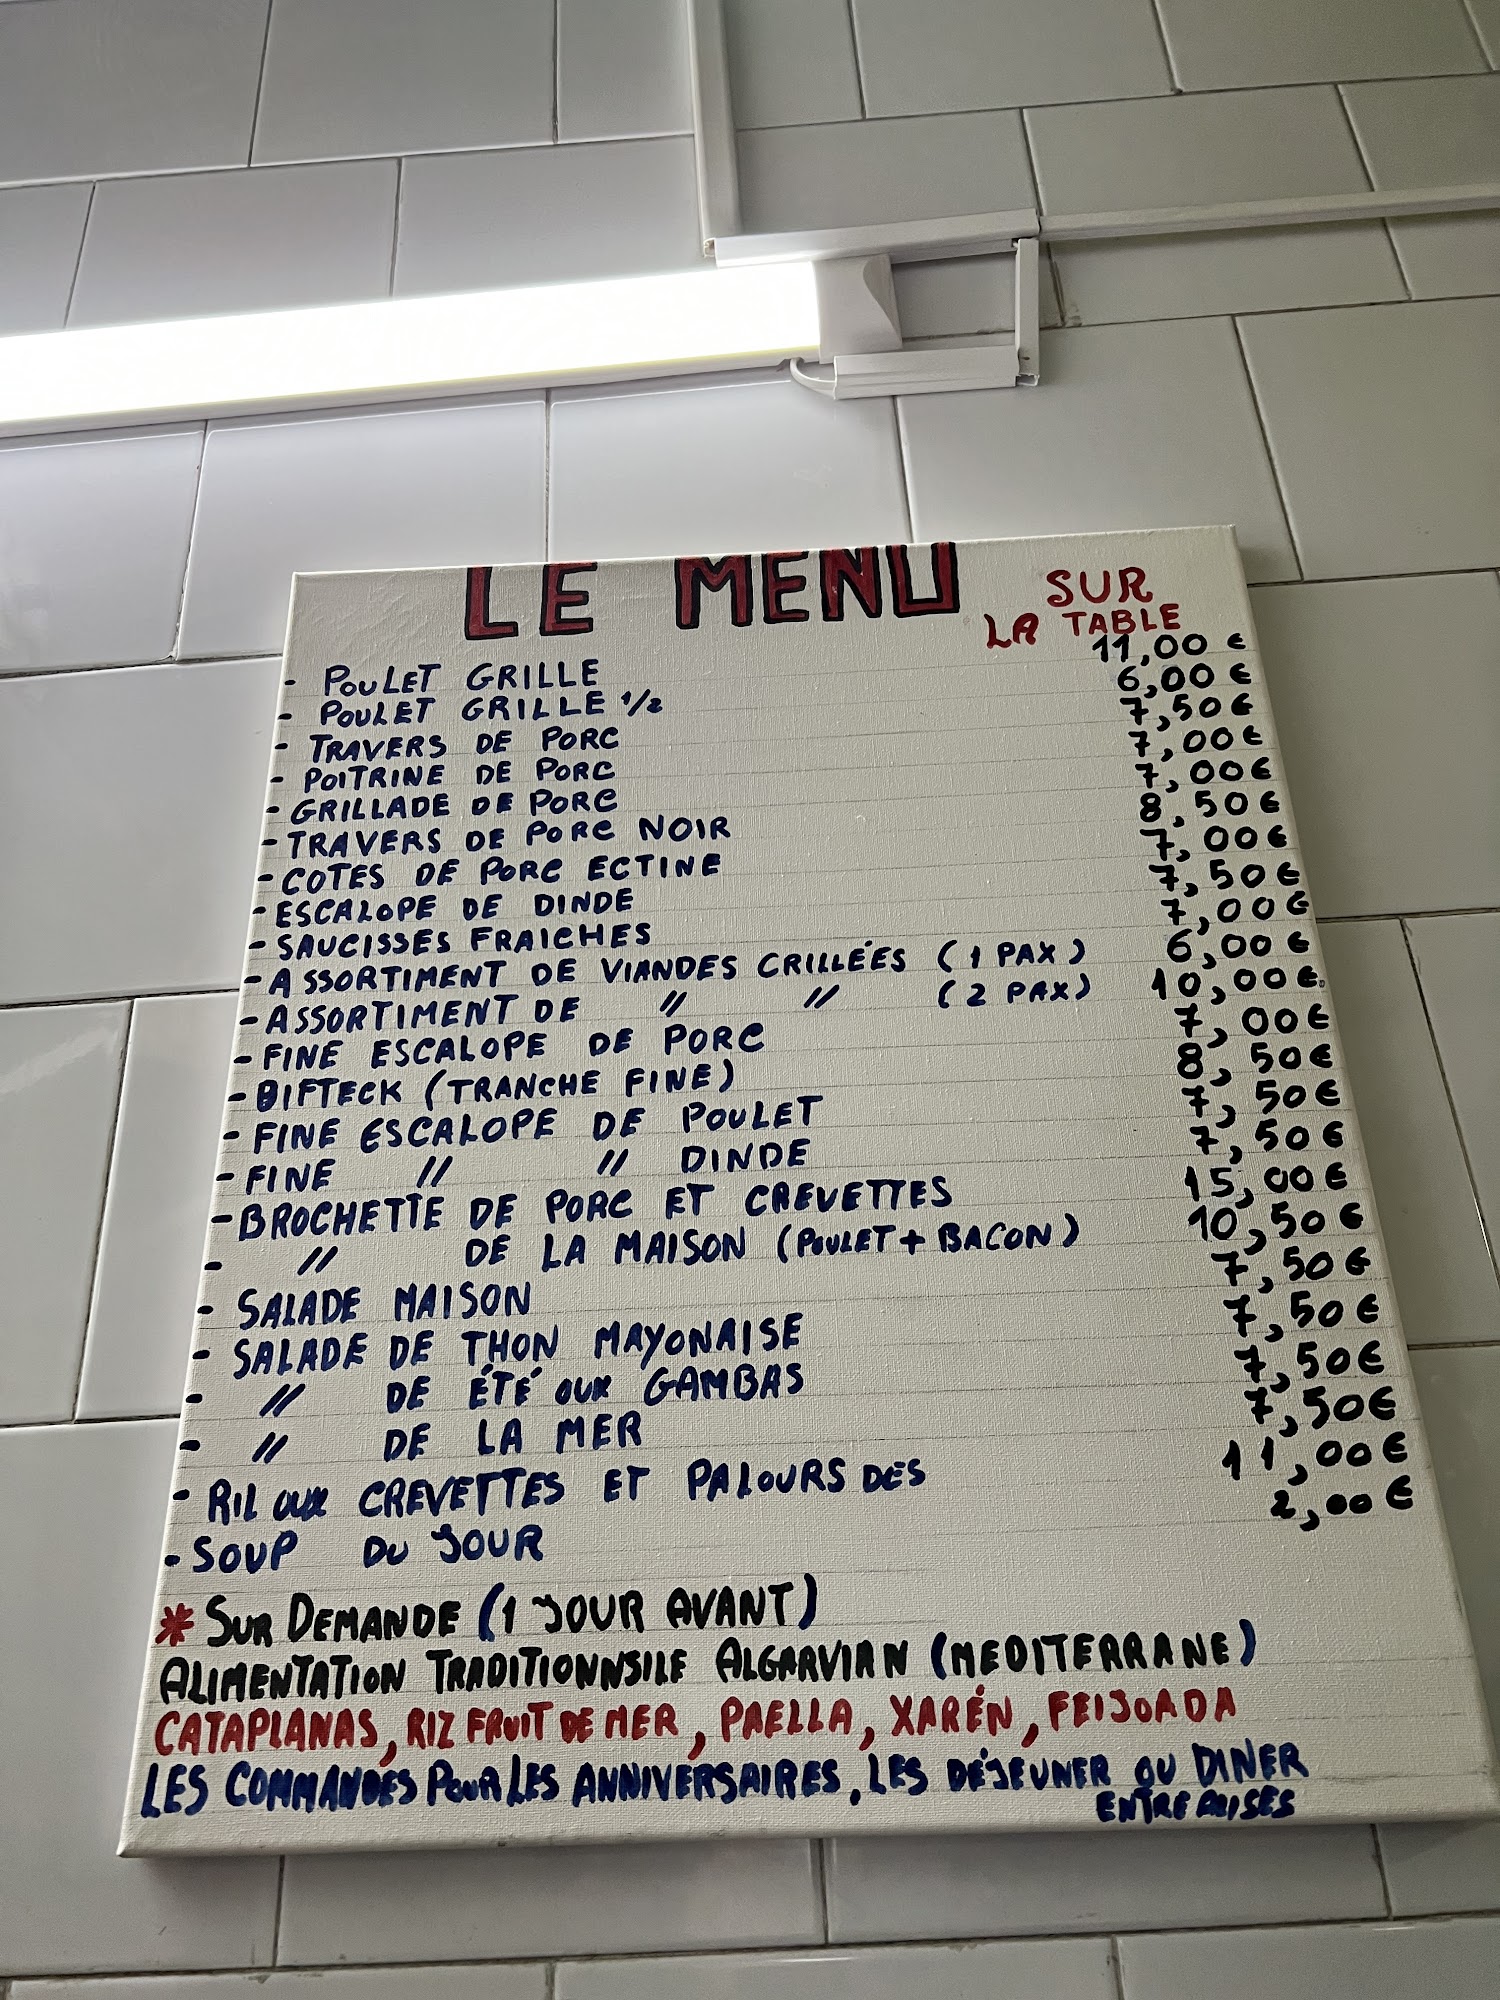 LE MENU
SUR
LA TABLE
- POULET GRILLE 11,00 €
- POULET GRILLE 1/2 6,00 €
- TRAVERS DE PORC 7,50 €
- POITRINE DE PORC 7,00 €
- GRILLADE DE PORC 7,00 €
- TRAVERS DE PORC NOIR 8,50 €
- COTES DE PORC ECTINE 7,00 €
- ESCALOPE DE DINDE 7,50 €
- SAUCISSES FRAICHES 7,00 €
- ASSORTIMENT DE VIANDES CRILLÉES (1 PAX) 6,00 €
- ASSORTIMENT DE " " (2 PAX) 10,00 €
- FINE ESCALOPE DE PORC 7,00 €
- BIFTECK (TRANCHE FINE) 8,50 €
- FINE ESCALOPE DE POULET 7,50 €
- FINE " " DINDE 7,50 €
- BROCHETTE DE PORC ET CREVETTES 15,00 €
- " DE LA MAISON (POULET + BACON) 10,50 €
- SALADE MAISON 7,50 €
- SALADE DE THON MAYONAISE 7,50 €
- " DE ÉTÉ AUX GAMBAS 7,50 €
- " DE LA MER 7,50 €
- RIL AUX CREVETTES ET PALOURS DES 11,00 €
- SOUP DU JOUR 2,00 €
* SUR DEMANDE (1 JOUR AVANT)
ALIMENTATION TRADITIONNSILE ALGARVIAN (MEDITERRANE)
CATAPLANAS, RIZ FRUIT DE MER, PAELLA, XARÉN, FEIJOADA
LES COMMANDES POUR LES ANNIVERSAIRES, LES DÉJEUNER OU DINER
ENTREPRISES